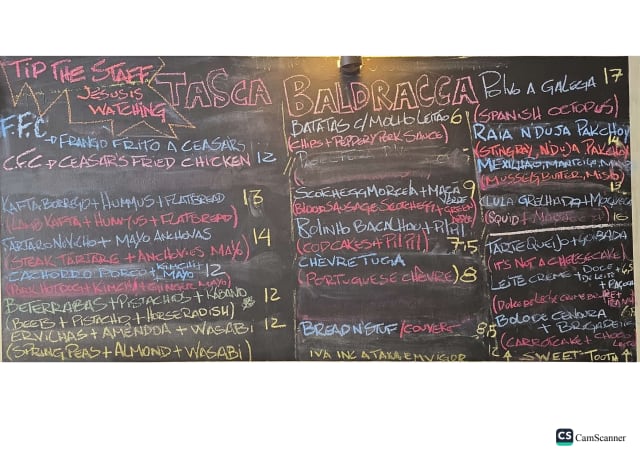 TIP THE STAFF
JESUS IS
WATCHING
TASCA BALDRACCA
F.F.C
FRANGO FRITO A CEASARS
C.F.C CEASARS FRIED CHICKEN 12
KAFTA BORREGO + HUMMUS + FLATBREAD 13
(LAMB KAFTA + HUMMUS + FLATBREAD)
TARTARO NOVILHO + MAYO ANCHOVAS 14
(STEAK TARTARE + ANCHOVIES MAYO)
CACHORRO PORCO + KIMCHI MAYO 12
(PORK HOTDOG + KIMCHI
BETERRABAS + PISTACHIOS + RABANO 12
(BEETS + PISTACHIO + HORSERADISH)
ERVILHAS + AMENDOA + WASABI 12
(SPRING PEAS + ALMOND + WASABI)
BATATAS C/MOLHO LEITAO 6
(CHIPS + PEPPERY PORK SAUCE)
SCOTCH EGG MORCELA + MAÇA VERDE 9
(BLOOD SAUSAGE SCOTCH EGG + GREEN APPLE)
BOLINHO BACALHAU + PILPIL
(CODCAKES + PILPIL) 7,5
CHÈVRE TUGA
(PORTUGUESE CHÈVRE) 8
BREAD N STUF/COUVERT 8,5
IVA INC A TAXA EM VIGOR
POLVO A GALEGA 17
(SPANISH OCTOPUS)
RAIA NDUJA PAKCHOY
(STINGRAY, NDUJA PAKCHOY 14
MEXILHAO, MANTEIGA,
(MUSSELS, BUTER, MISO)
LULA GRELHADA +
(SQUID + 16
TARTE QUEIJO + GOIABADA
(IT'S NOT A CHEESECAKE)
LEITE CREME + DOCE DI LEIT
(DOLCE DE LECHE CREME BRULEE +
BOLO DE CENOURA
+ BRIGADEIRO
(CARROT CAKE + CHOCO
SWEET TOOTH
CS CamScanner